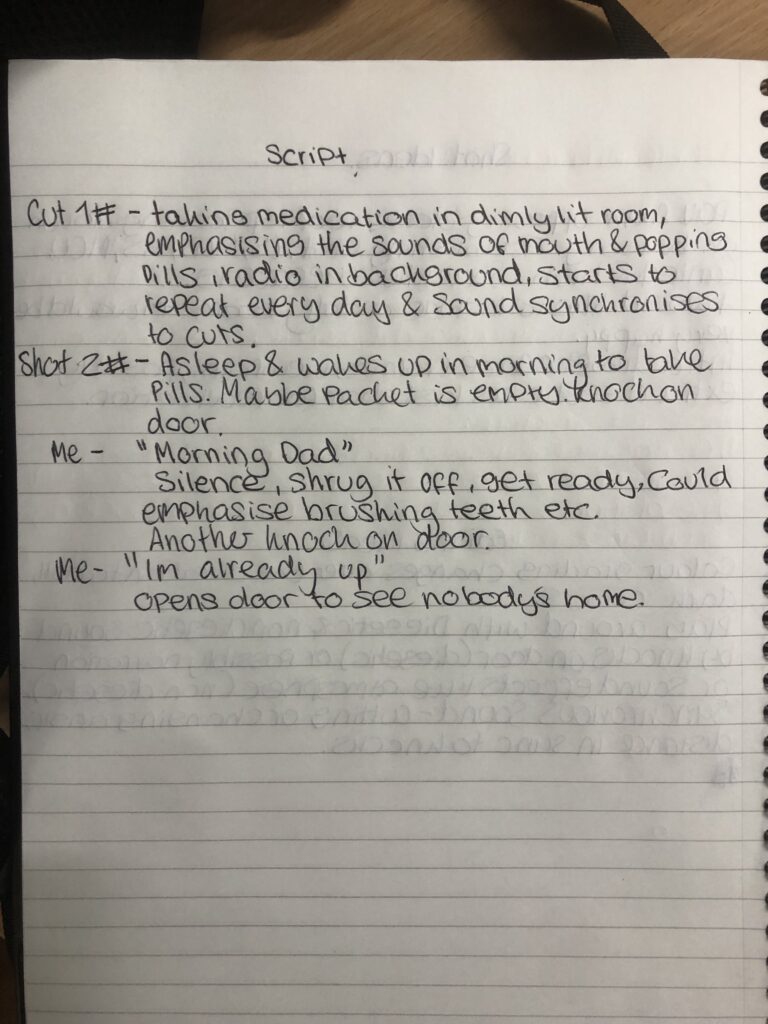 Script.
Cut 1# - taking medication in dimly lit room,
emphasising the sounds of mouth & popping
pills, radio in background, starts to
repeat every day & sound synchronises
to cuts.
Shot 2# - Asleep & wakes up in morning to take
pills. Maybe packet is empty. Knock on
door.
Me - "Morning Dad"
Silence, shrug it off, get ready, could
emphasise brushing teeth etc.
Another knock on door.
Me - "Im already up"
opens door to see nobody's home.